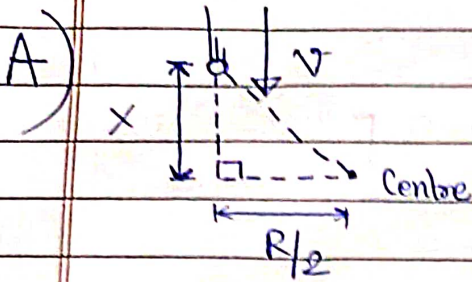 A)
V
X
Centre
R/2